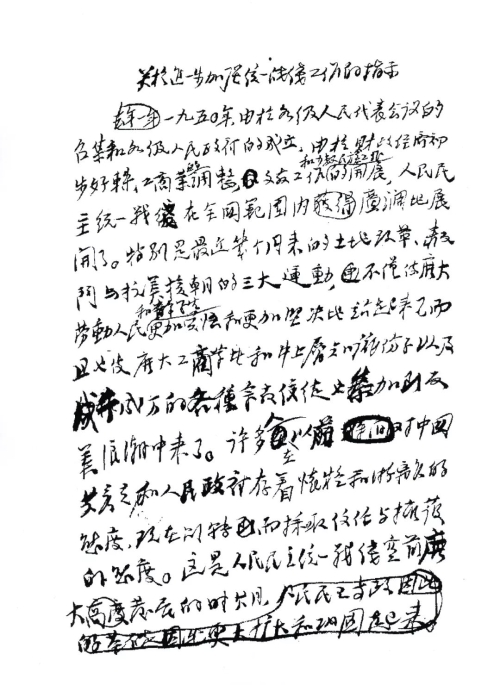 关于进一步加强统一战线工作的指示
去年一年一九五〇年，由于各级人民代表会议的
召集和各级人民政府的成立，由于财政经济初
步好转，工商业的调整，
和少数民族工作
文教工作的开展，人民民
主统一战线在全国范围内获得广阔地展
开了。特别是最近几个月来的土地改革、
与抗美援朝的三大运动，不仅使广大
和青年学生
劳动人民更加觉悟和更加坚决地站起来了，而
且也使广大工商业界和上层知识分子以及
成千成万的各种宗教信徒参加到反
美浪潮中来了。许多以前对中国
共产党和人民政府存着怀疑和
态度，现在则转而采取信任与拥护
的态度。这是人民民主统一战线空前
大高度发展的时期，人民民主专政因此
的基础更大扩大和巩固起来。